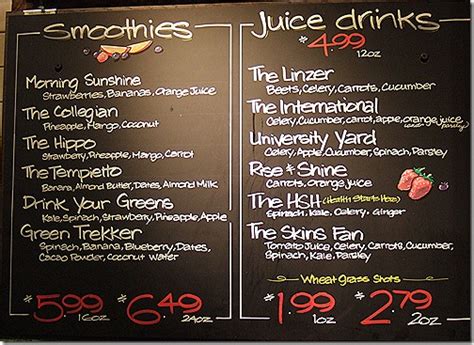 Smoothies
Morning Sunshine
Strawberries, Bananas, Orange Juice
The Collegian
Pineapple, Mango, Coconut
The Hippo
Strawberry, Pineapple, Mango, Carrot
The Tempietto
Banana, Almond Butter, Dates, Almond Milk
Drink Your Greens
Kale, Spinach, Strawberry, Pineapple, Apple
Green Trekker
Spinach, Banana, Blueberry, Dates,
Cacao Powder, Coconut Water
$5.99 16oz $6.49 24oz
Juice drinks
$4.99 12oz
The Linzer
Beets, Celery, Carrots, Cucumber
The International
Celery, Cucumber, carrot, apple, orange, juice
(and parsley)
University Yard
Celery, Apple, Cucumber, Spinach, Parsley
Rise & Shine
Carrots, Orange Juice
The HSH (Health Starts Here)
Spinach, Kale, Celery, Ginger
The Skins Fan
Tomato Juice, Celery, Carrots, Cucumber
Spinach, Kale, Parsley
Wheat Grass Shots
$1.99 1oz $2.79 2oz